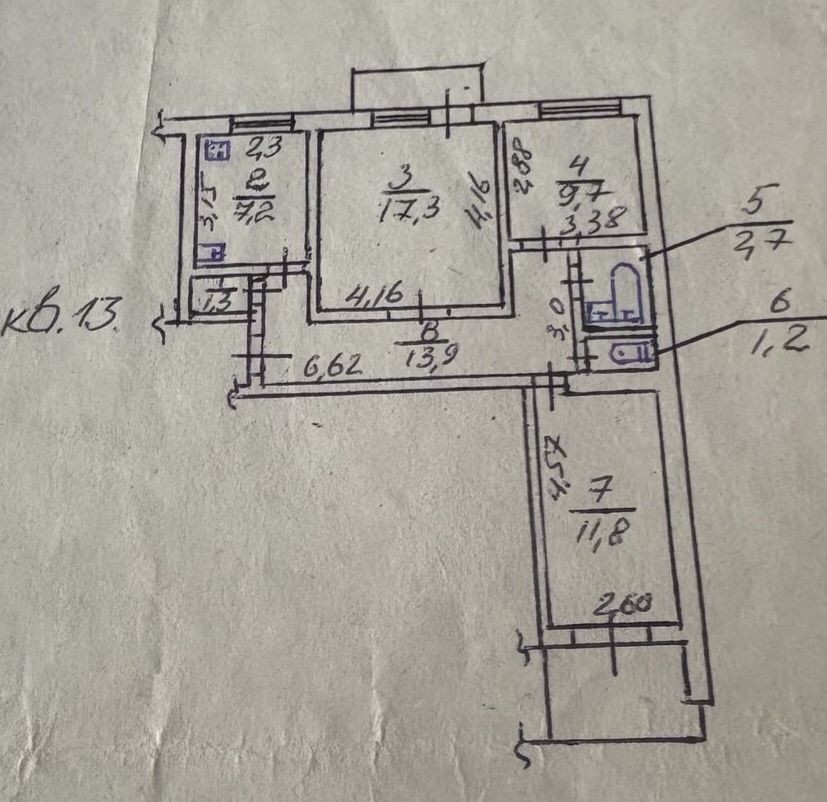 2,3
3,15
2
7,2
3
17,3
4,16
4,16
2,88
4
9,7
3,38
5
2,7
6
1,2
кв.13.
1
1,3
8
13,9
6,62
3,0
4,57
7
11,8
2,60